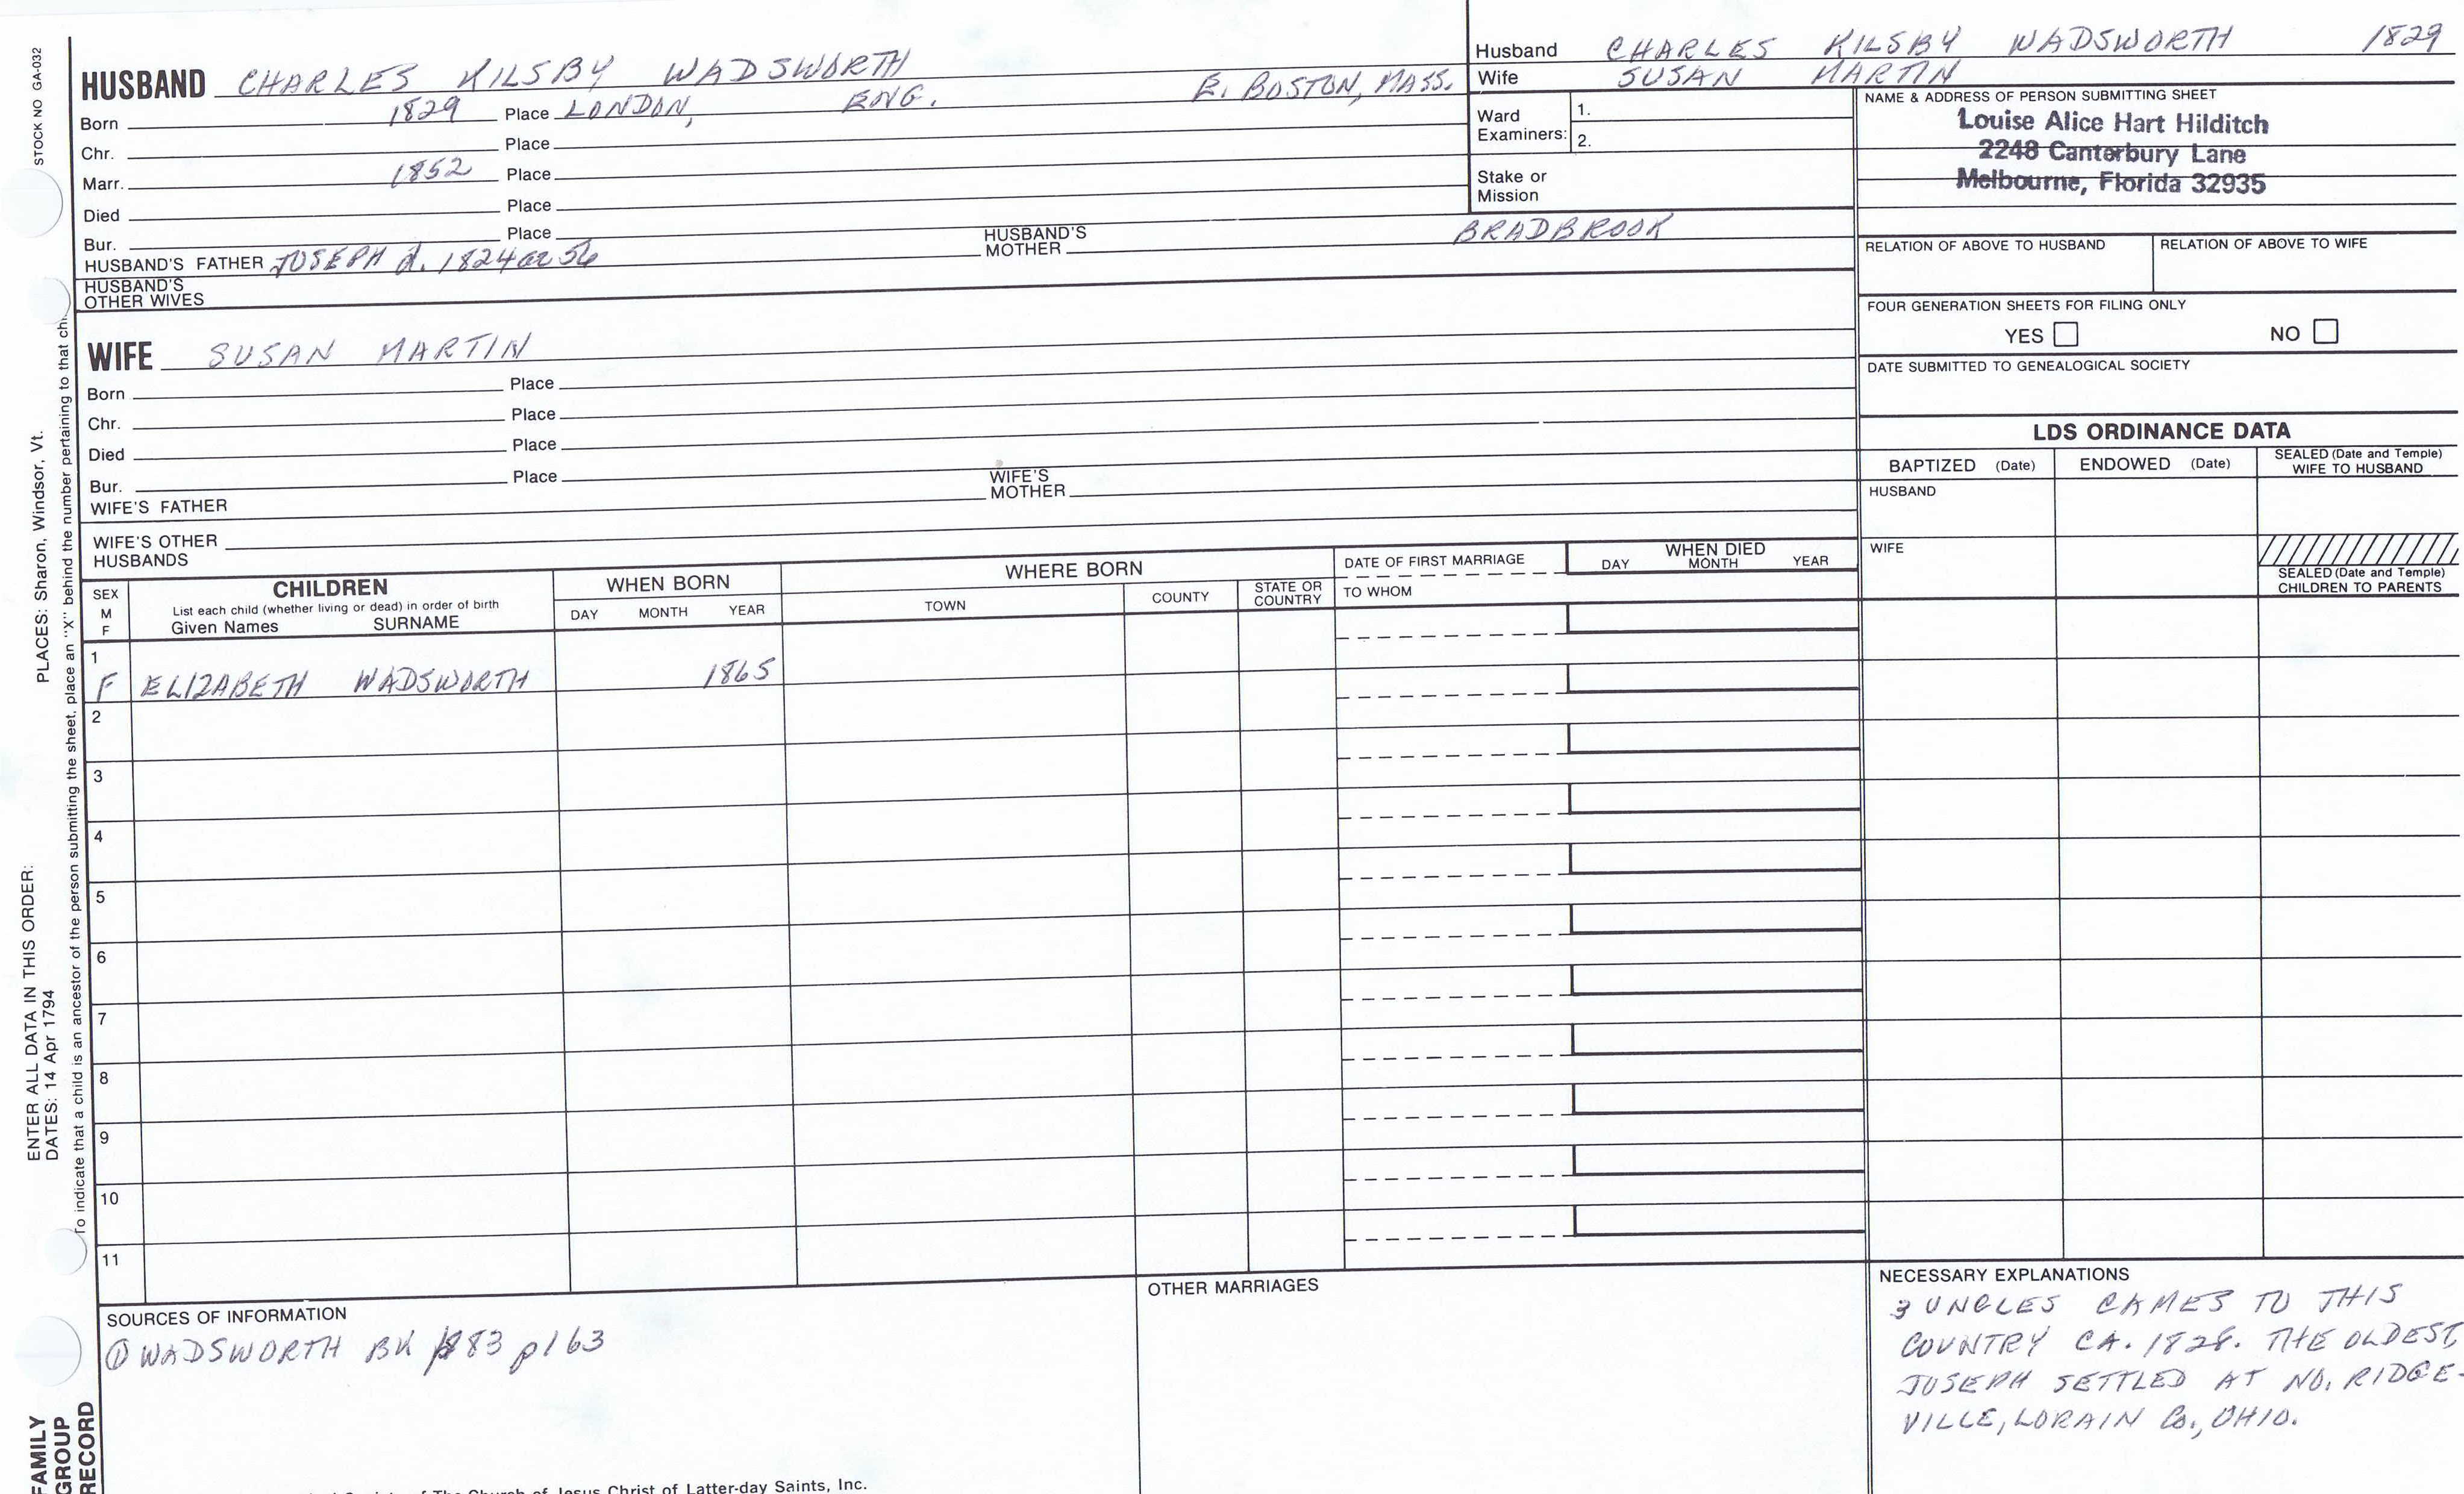 STOCK NO GA-032
PLACES: Sharon, Windsor, Vt.
ENTER ALL DATA IN THIS ORDER:
DATES: 14 Apr 1794
To indicate that a child is an ancestor of the person submitting the sheet, place an "X" behind the number pertaining to that chi
FAMILY
GROUP
RECORD
HUSBAND CHARLES KILSBY WADSWORTH
Born 1829 Place LONDON, ENG. E. BOSTON, MASS.
Chr. Place
Marr. 1852 Place
Died Place
Bur. Place
HUSBAND'S FATHER JOSEPH d. 1824 or 56 HUSBAND'S MOTHER BRADBROOK
HUSBAND'S
OTHER WIVES
WIFE SUSAN MARTIN
Born Place
Chr. Place
Died Place
Bur. Place
WIFE'S FATHER WIFE'S MOTHER
WIFE'S OTHER
HUSBANDS
Husband CHARLES KILSBY WADSWORTH 1829
Wife SUSAN MARTIN
Ward
Examiners:
1.
2.
Stake or
Mission
NAME & ADDRESS OF PERSON SUBMITTING SHEET
Louise Alice Hart Hilditch
2248 Canterbury Lane
Melbourne, Florida 32935
RELATION OF ABOVE TO HUSBAND RELATION OF ABOVE TO WIFE
FOUR GENERATION SHEETS FOR FILING ONLY
YES NO
DATE SUBMITTED TO GENEALOGICAL SOCIETY
LDS ORDINANCE DATA
BAPTIZED (Date) ENDOWED (Date) SEALED (Date and Temple) WIFE TO HUSBAND
HUSBAND
WIFE
SEALED (Date and Temple)
CHILDREN TO PARENTS
SEX
M
F
CHILDREN
List each child (whether living or dead) in order of birth
Given Names SURNAME
WHEN BORN
DAY MONTH YEAR
WHERE BORN
TOWN COUNTY STATE OR COUNTRY
DATE OF FIRST MARRIAGE
TO WHOM
WHEN DIED
DAY MONTH YEAR
1
F ELIZABETH WADSWORTH 1865
2
3
4
5
6
7
8
9
10
11
SOURCES OF INFORMATION
① WADSWORTH BK 1883 p163
OTHER MARRIAGES
NECESSARY EXPLANATIONS
3 UNCLES CAMES TO THIS
COUNTRY CA. 1828. THE OLDEST,
JOSEPH SETTLED AT NO. RIDGE-
VILLE, LORAIN Co., OHIO.
of The Church of Jesus Christ of Latter-day Saints, Inc.